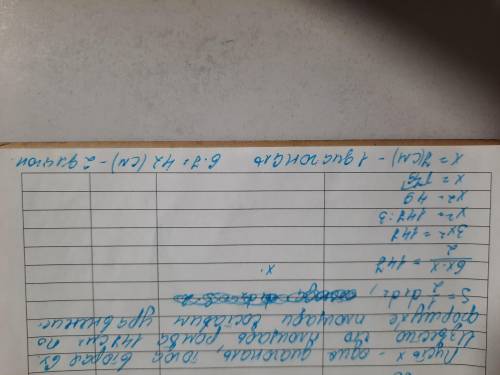 Пусть х - одна диагональ, тогда вторая 6х
Известно, что площадь ромба 147 см² по
формуле площади составим уравнение.
S = 1/2 d₁d₂
6x·x/2 = 147
3x² = 147
x² = 147:3
x² = 49
x = √49
x = 7(см) - 1 диагональ 6·7 = 42 (см) - 2 диагон.